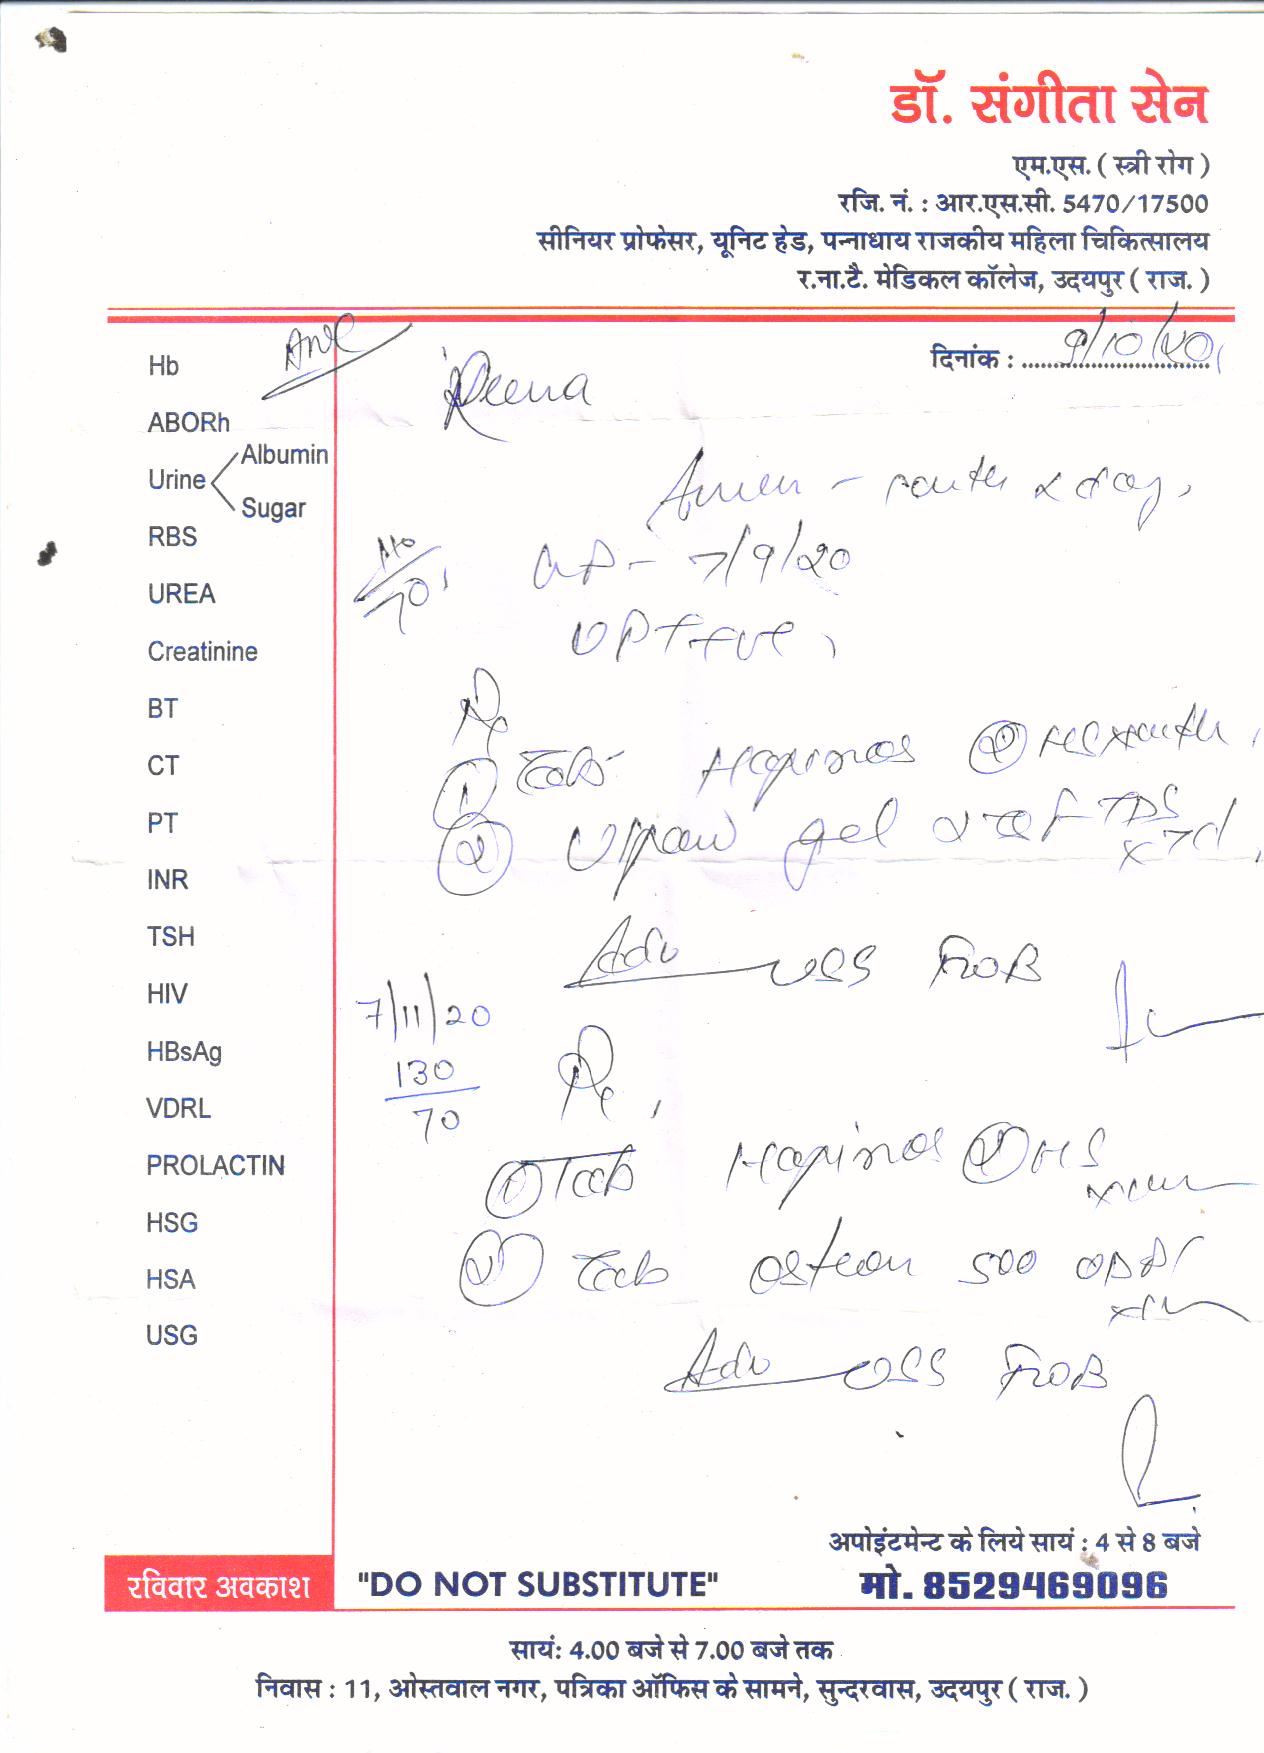 डॉ. संगीता सेन
एम.एस. ( स्त्री रोग )
रजि. नं. : आर.एस.सी. 5470/17500
सीनियर प्रोफेसर, यूनिट हेड, पन्नाधाय राजकीय महिला चिकित्सालय
र.ना.टै. मेडिकल कॉलेज, उदयपुर ( राज. )
ANC
दिनांक : 9/10/20
Reena
Hb
ABORh
Urine
Albumin
Sugar
RBS
UREA
Creatinine
BT
CT
PT
INR
TSH
HIV
HBsAg
VDRL
PROLACTIN
HSG
HSA
USG
110/70
- 7/9/20
UPT +ve
Rx
① Tab
② gel TDS x 7d
Adv USS
7/11/20
130/70
Rx
① Tab HS
② Tab 500
Adv USS
अपोइंटमेन्ट के लिये सायं : 4 से 8 बजे
रविवार अवकाश
"DO NOT SUBSTITUTE"
मो. 8529469096
सायं: 4.00 बजे से 7.00 बजे तक
निवास : 11, ओस्तवाल नगर, पत्रिका ऑफिस के सामने, सुन्दरवास, उदयपुर ( राज. )